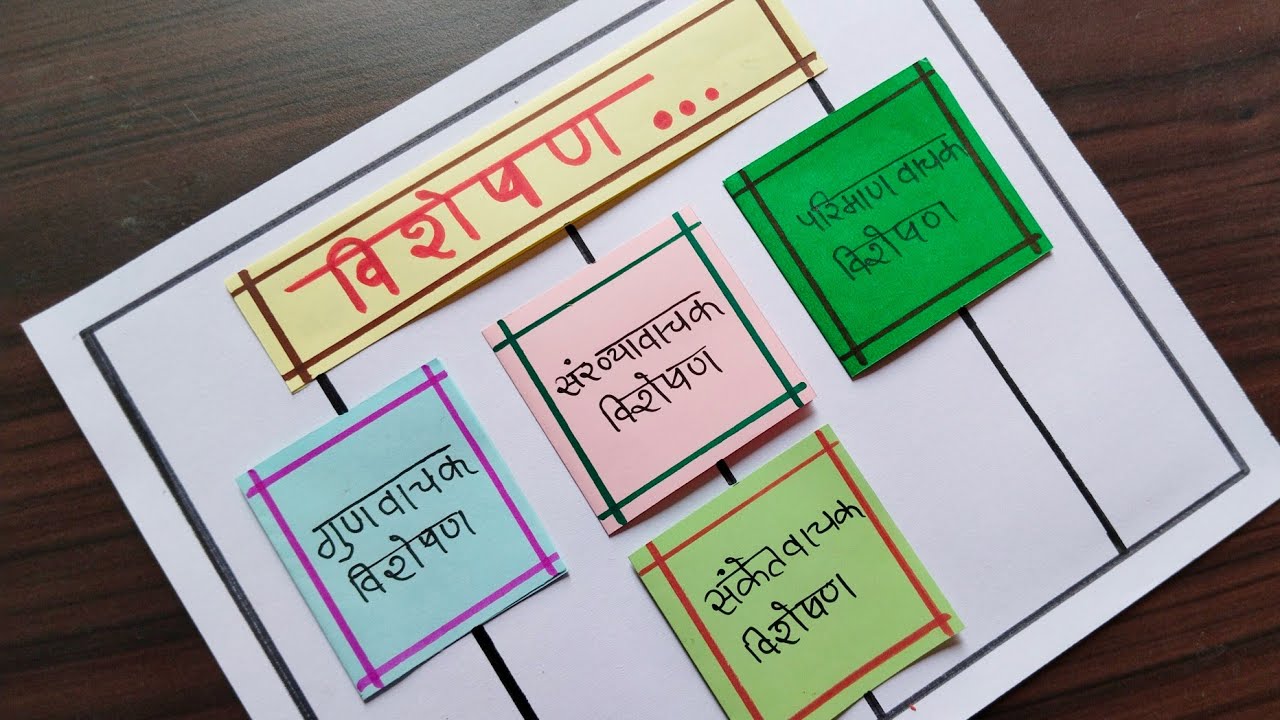 विशेषण...
गुणवाचक
विशेषण
संख्यावाचक
विशेषण
परिमाण वाचक
विशेषण
संकेतवाचक
विशेषण